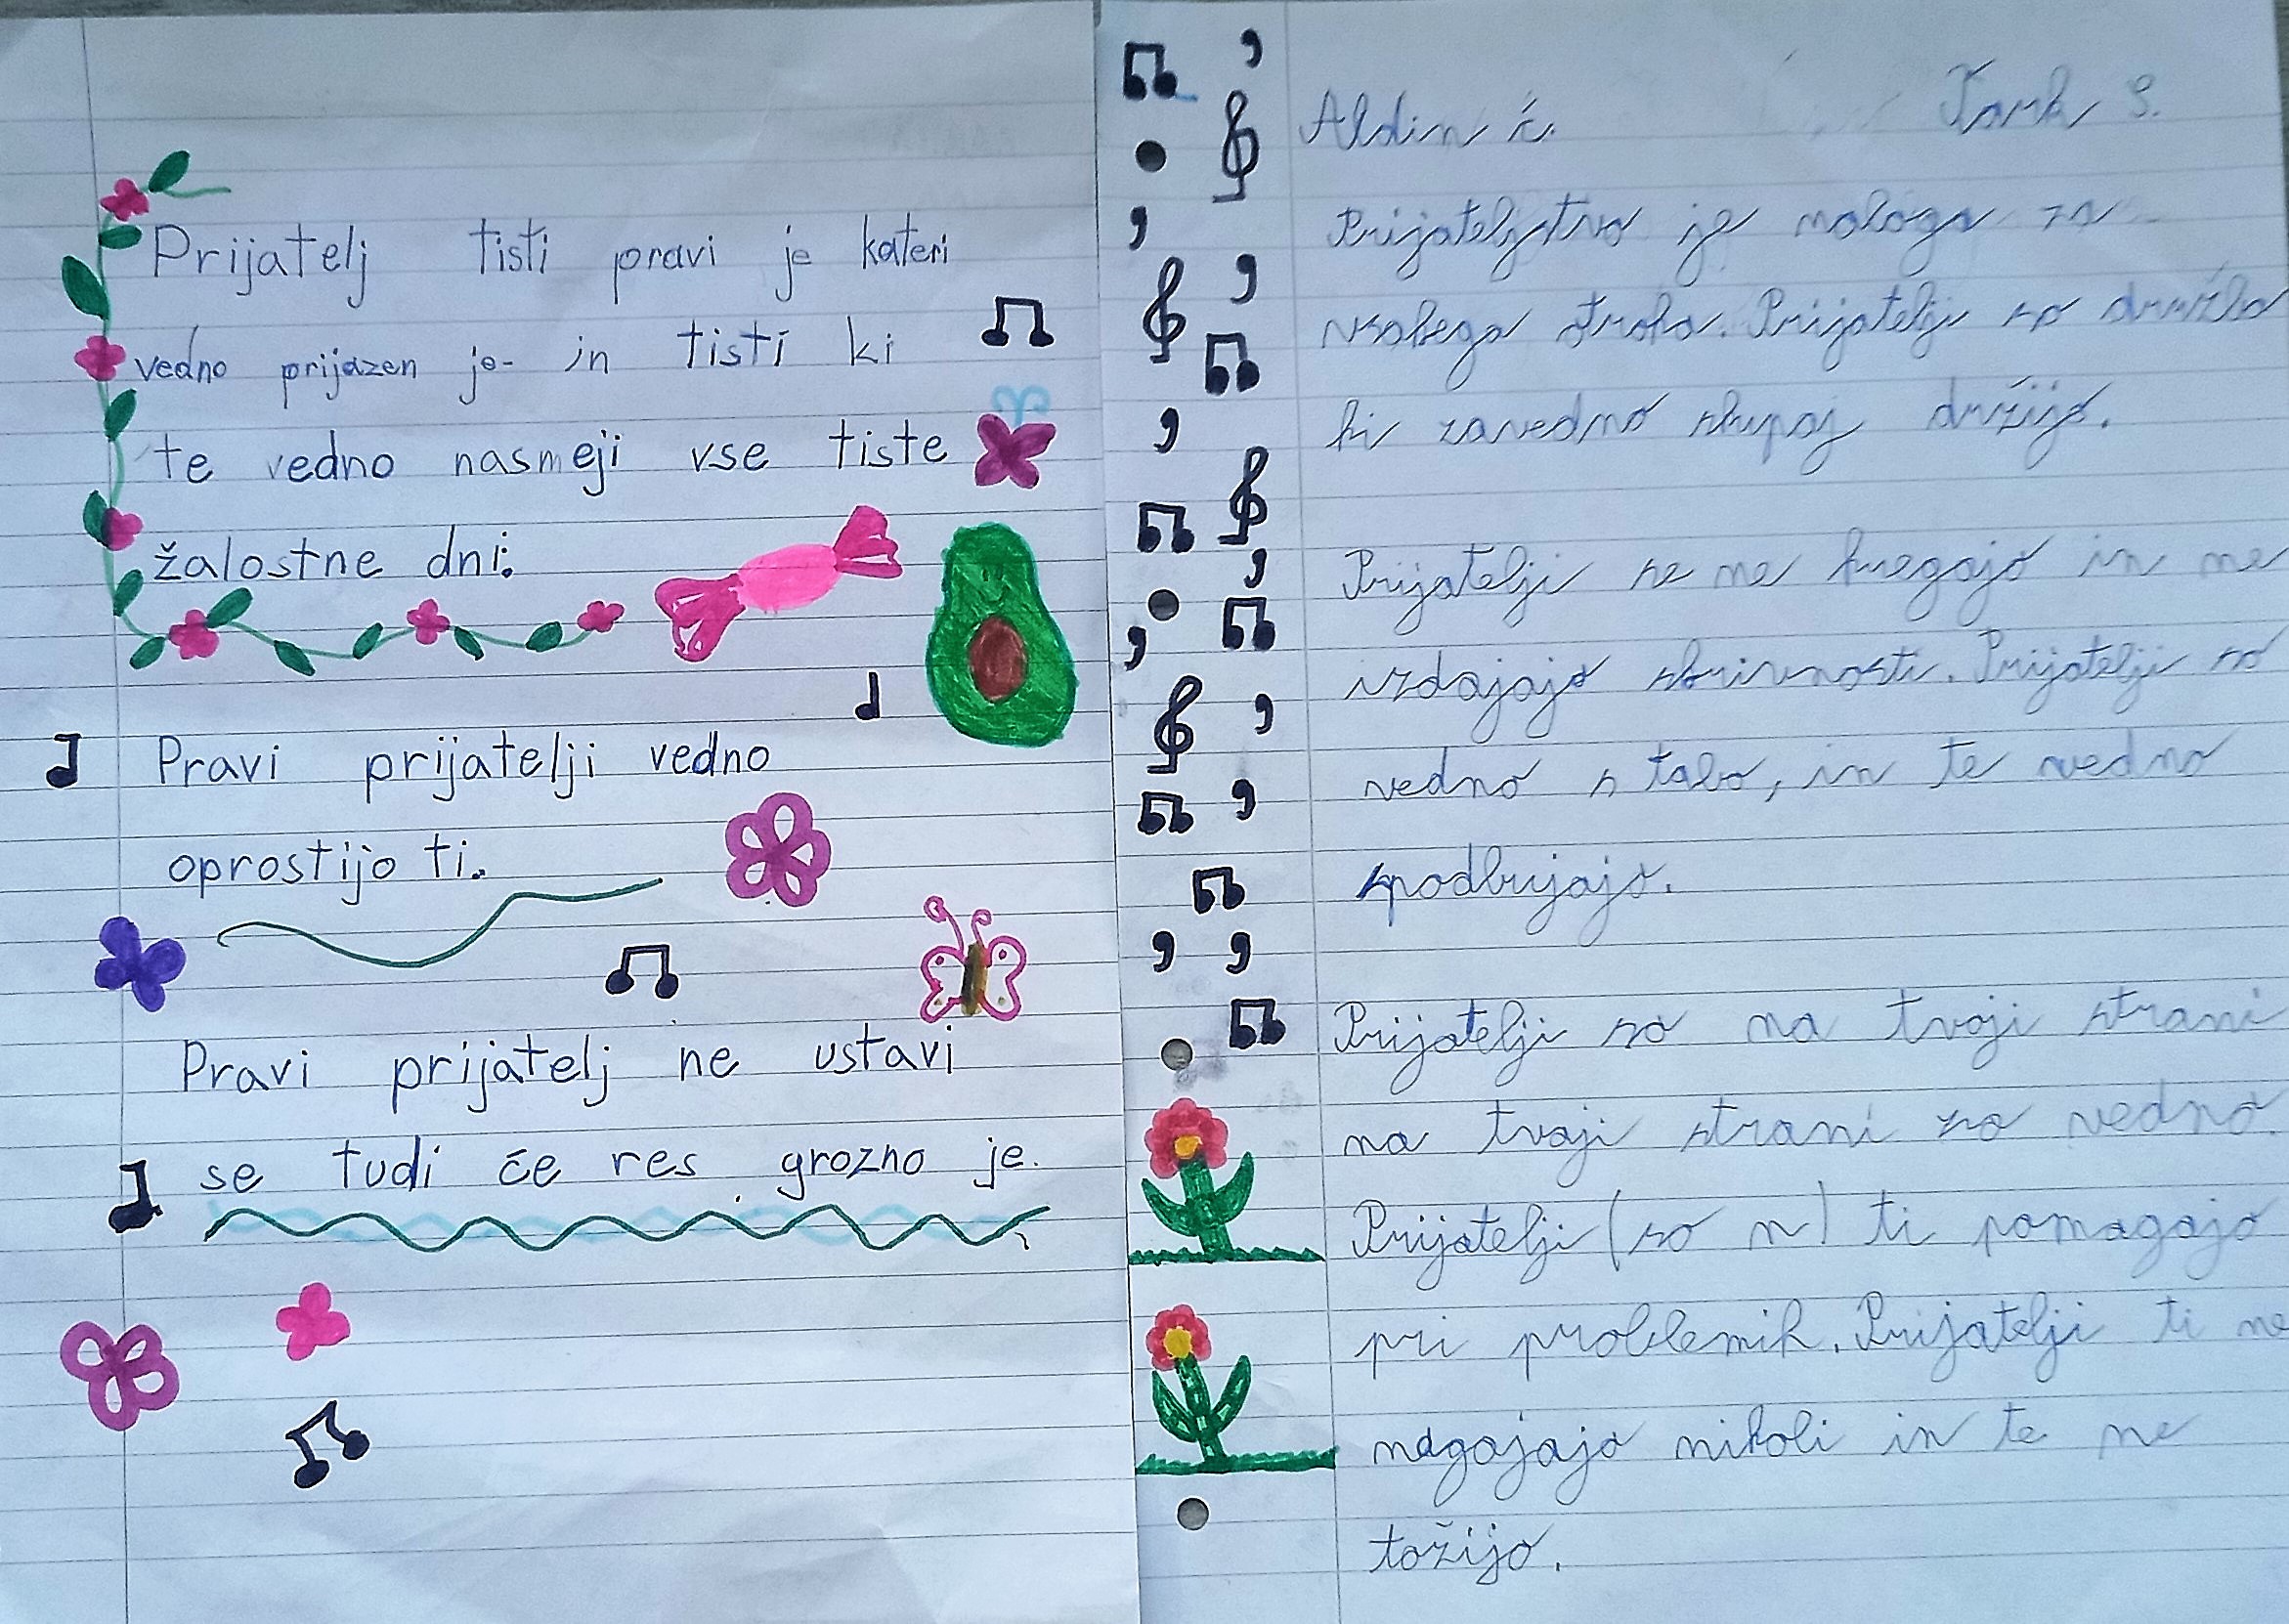 Prijatelj tisti pravi je kateri
vedno prijazen je- in tisti ki
te vedno nasmeji vse tiste
žalostne dni.
Pravi prijatelji vedno
oprostijo ti.
Pravi prijatelj ne ustavi
se tudi če res grozno je.
Aldin č. S.
Prijateljstvo je naloga za
vsakega otroka. Prijatelji so družba
ki zavedno skupaj držijo.
Prijatelji se ne kregajo in ne
izdajajo skrivnosti. Prijatelji so
vedno s tabo, in te vedno
spodbujajo.
Prijatelji so na tvoji strani
na tvoji strani so vedno.
Prijatelji (so n) ti pomagajo
pri problemih. Prijatelji ti ne
nagajajo nikoli in te ne
tožijo.